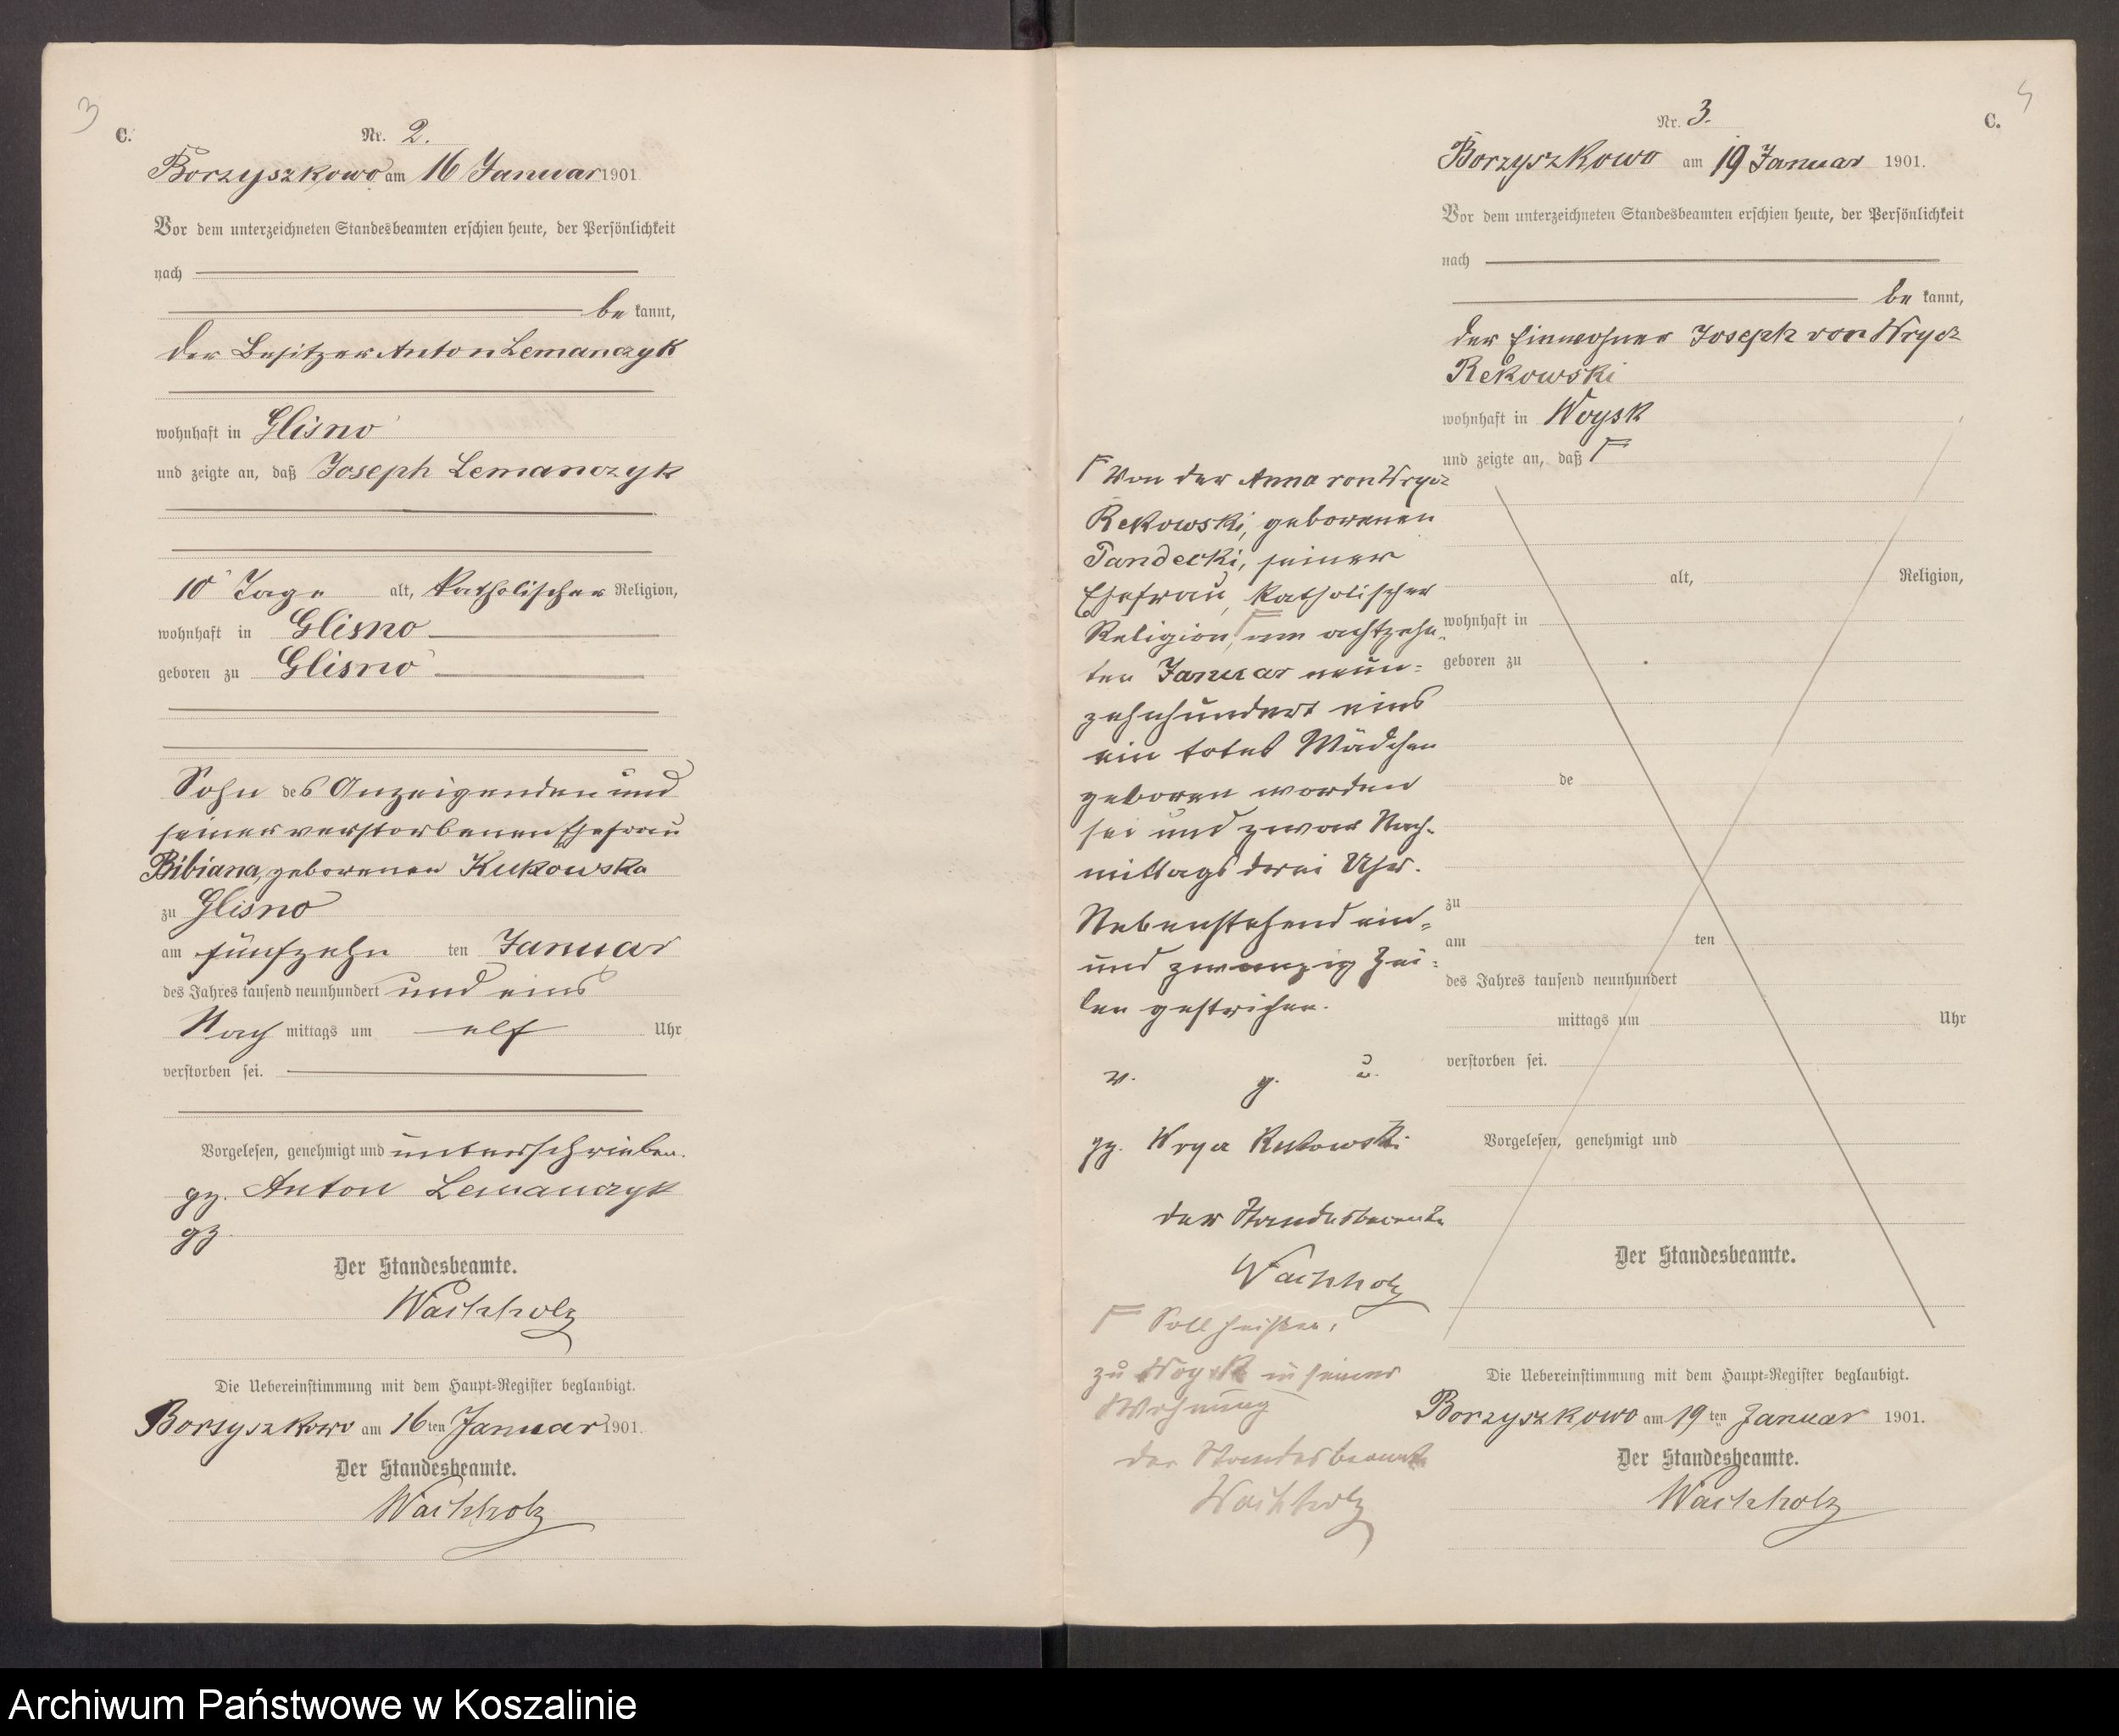 3
C.
Nr. 2.
Borzyszkowo am 16 Januar 1901
Vor dem unterzeichneten Standesbeamten erschien heute, der Persönlichkeit
nach
be kannt,
der Besitzer Anton Lemanczyk
wohnhaft in Glisno
und zeigte an, daß Joseph Lemanczyk
10 Tage alt, katholischer Religion,
wohnhaft in Glisno
geboren zu Glisno
Sohn des Anzeigenden und
seiner verstorbenen Ehefrau
Bibiana, geborenen Kukowska
zu Glisno
am fünfzehn ten Januar
des Jahres tausend neunhundert und eins
Nach mittags um elf Uhr
verstorben sei.
Vorgelesen, genehmigt und unterschrieben.
gz. Anton Lemanczyk
gz.
Der Standesbeamte.
Wachholz
Die Uebereinstimmung mit dem Haupt-Register beglaubigt.
Borzyszkowo am 16ten Januar 1901.
Der Standesbeamte.
Wachholz
Nr. 3.
C.
Borzyszkowo am 19 Januar 1901.
Vor dem unterzeichneten Standesbeamten erschien heute, der Persönlichkeit
nach
be kannt,
der Einwohner Joseph von Wrycz
Rekowski
wohnhaft in Woysk
und zeigte an, daß
Von der Anna von Wrycz
Rekowski, geborenen
Pandecki, seiner
Ehefrau, katholischer
Religion, am achtzehn-
ten Januar neun-
zehnhundert eins
ein totes Mädchen
geboren worden
sei und zwar Nach-
mittags drei Uhr.
Nebenstehend ein-
und zwanzig Zei-
len gestrichen.
v. g. u.
gz. Wrycz Rekowski
der Standesbeamte
Wachholz
Soll heißen:
zu Woysk in seiner
Wohnung
der Standesbeamte
Wachholz
alt, Religion,
wohnhaft in
geboren zu
de
zu
am ten
des Jahres tausend neunhundert
mittags um Uhr
verstorben sei.
Vorgelesen, genehmigt und
Der Standesbeamte.
Die Uebereinstimmung mit dem Haupt-Register beglaubigt.
Borzyszkowo am 19ten Januar 1901.
Der Standesbeamte.
Wachholz
Archiwum Państwowe w Koszalinie